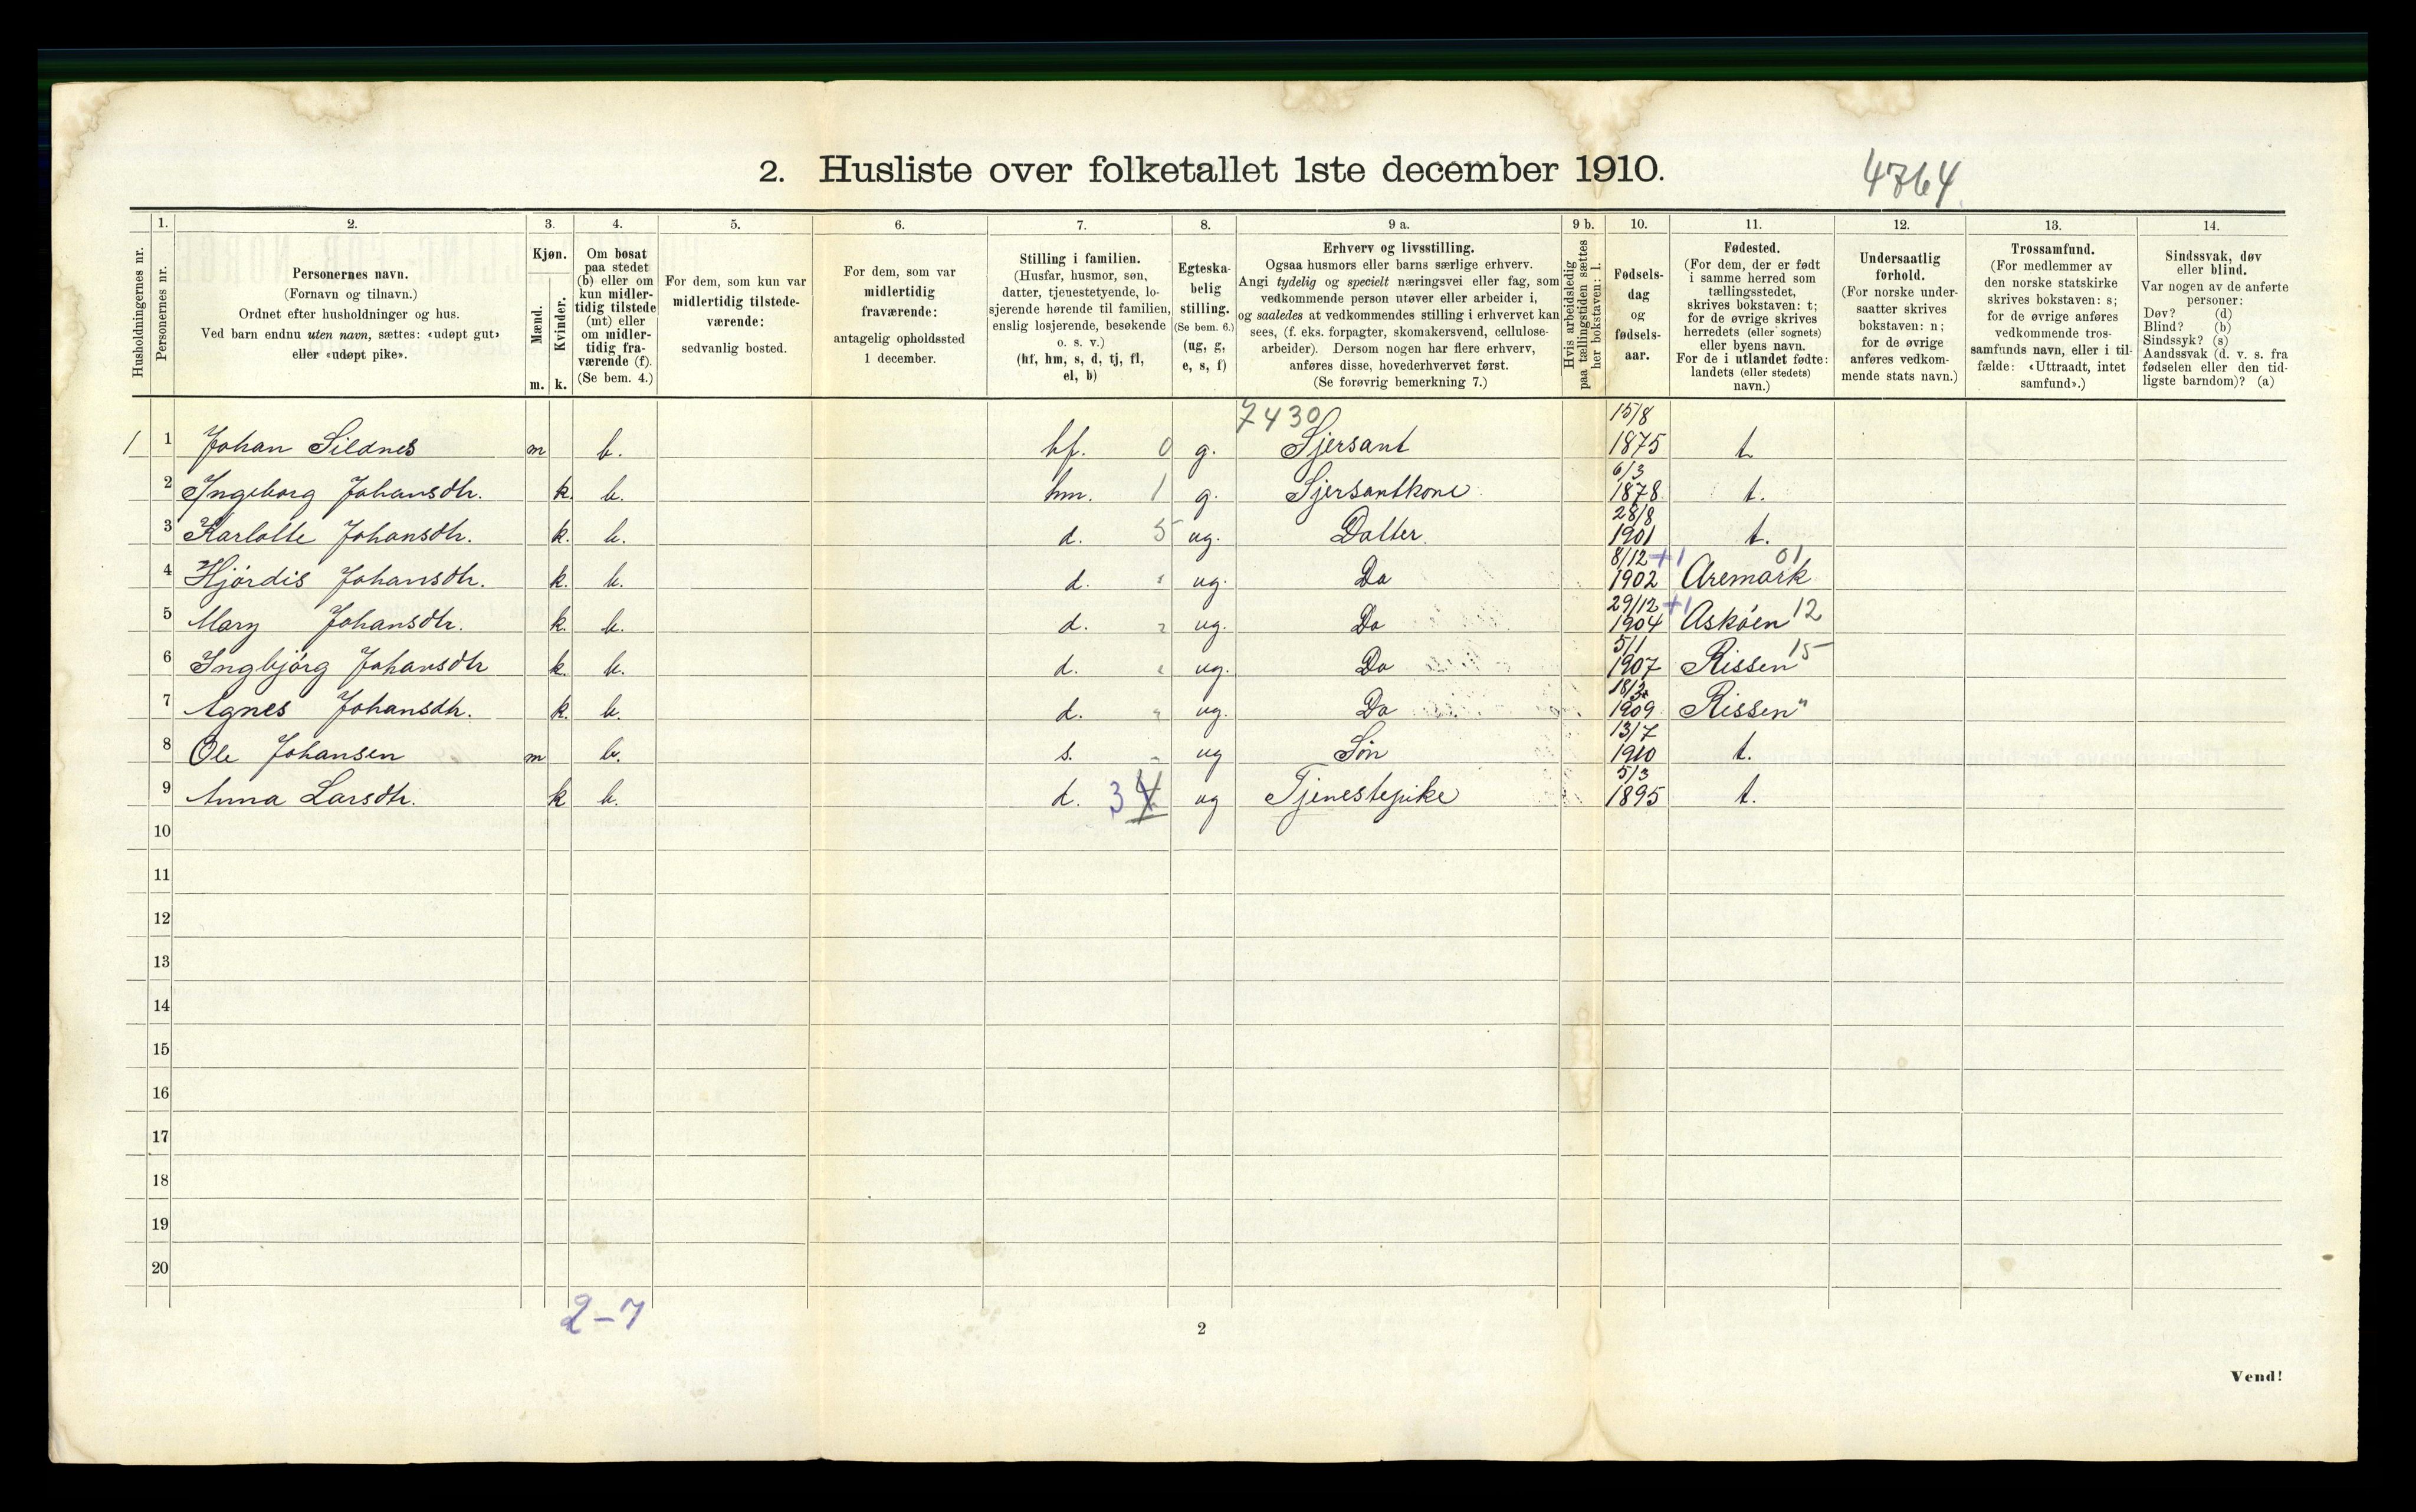 2. Husliste over folketallet 1ste december 1910.
4764
Husholdningernes nr.
1.
Personernes nr.
2.
Personernes navn.
(Fornavn og tilnavn.)
Ordnet efter husholdninger og hus.
Ved barn endnu uten navn, sættes: «udøpt gut»
eller «udøpt pike».
3.
Kjøn.
Mænd.
Kvinder.
m. k.
4.
Om bosat
paa stedet
(b) eller om
kun midler-
tidig tilstede
(mt) eller
om midler-
tidig fra-
værende (f).
(Se bem. 4.)
5.
For dem, som kun var
midlertidig tilstede-
værende:
sedvanlig bosted.
6.
For dem, som var
midlertidig
fraværende:
antagelig opholdssted
1 december.
7.
Stilling i familien.
(Husfar, husmor, søn,
datter, tjenestetyende, lo-
sjerende hørende til familien,
enslig losjerende, besøkende
o. s. v.)
(hf, hm, s, d, tj, fl,
el, b)
8.
Egteska-
belig
stilling.
(Se bem. 6.)
(ug, g,
e, s, f)
9 a.
Erhverv og livsstilling.
Ogsaa husmors eller barns særlige erhverv.
Angi tydelig og specielt næringsvei eller fag, som
vedkommende person utøver eller arbeider i,
og saaledes at vedkommendes stilling i erhvervet kan
sees, (f. eks. forpagter, skomakersvend, cellulose-
arbeider). Dersom nogen har flere erhverv,
anføres disse, hovederhvervet først.
(Se forøvrig bemerkning 7.)
9 b.
Hvis arbeidsledig
paa tællingstiden sættes
her bokstaven: l.
10.
Fødsels-
dag
og
fødsels-
aar.
11.
Fødested.
(For dem, der er født
i samme herred som
tællingsstedet,
skrives bokstaven: t;
for de øvrige skrives
herredets (eller sognets)
eller byens navn.
For de i utlandet fødte:
landets (eller stedets)
navn.)
12.
Undersaatlig
forhold.
(For norske under-
saatter skrives
bokstaven: n;
for de øvrige
anføres vedkom-
mende stats navn.)
13.
Trossamfund.
(For medlemmer av
den norske statskirke
skrives bokstaven: s;
for de øvrige anføres
vedkommende tros-
samfunds navn, eller i til-
fælde: «Uttraadt, intet
samfund».)
14.
Sindssvak, døv
eller blind.
Var nogen av de anførte
personer:
Døv? (d)
Blind? (b)
Sindssyk? (s)
Aandssvak (d. v. s. fra
fødselen eller den tid-
ligste barndom)? (a)
7430 15/8
1 1 Johan Sildnes m b. hf. 0 g. Sjersant 1875 t.
6/3
2 Ingeborg Johansdtr. k. b. hm. 1 g. Sjersantkone 1878 t.
28/8
3 Karlotte Johansdtr. k. b. d. 5 ug. Datter 1901 t.
8/12 +1 01
4 Hjördis Johansdtr. k. b. d. " ug. Do 1902 Aremark
29/12 +1
5 Mary Johansdtr. k. b. d. " ug. Do 1904 Asköen 12
5/1
6 Ingbjörg Johansdtr k. b. d. " ug. Do 1907 Rissen 15
18/3
7 Agnes Johansdtr. k. b. d. " ug. Do 1909 Rissen "
13/7
8 Ole Johansen m b. s. " ug Sön 1910 t.
5/3
9 Anna Larsdtr. k b. d. 3 4 ug Tjenestepike 1895 t.
10
11
12
13
14
15
16
17
18
19
20
2-7
2
Vend!